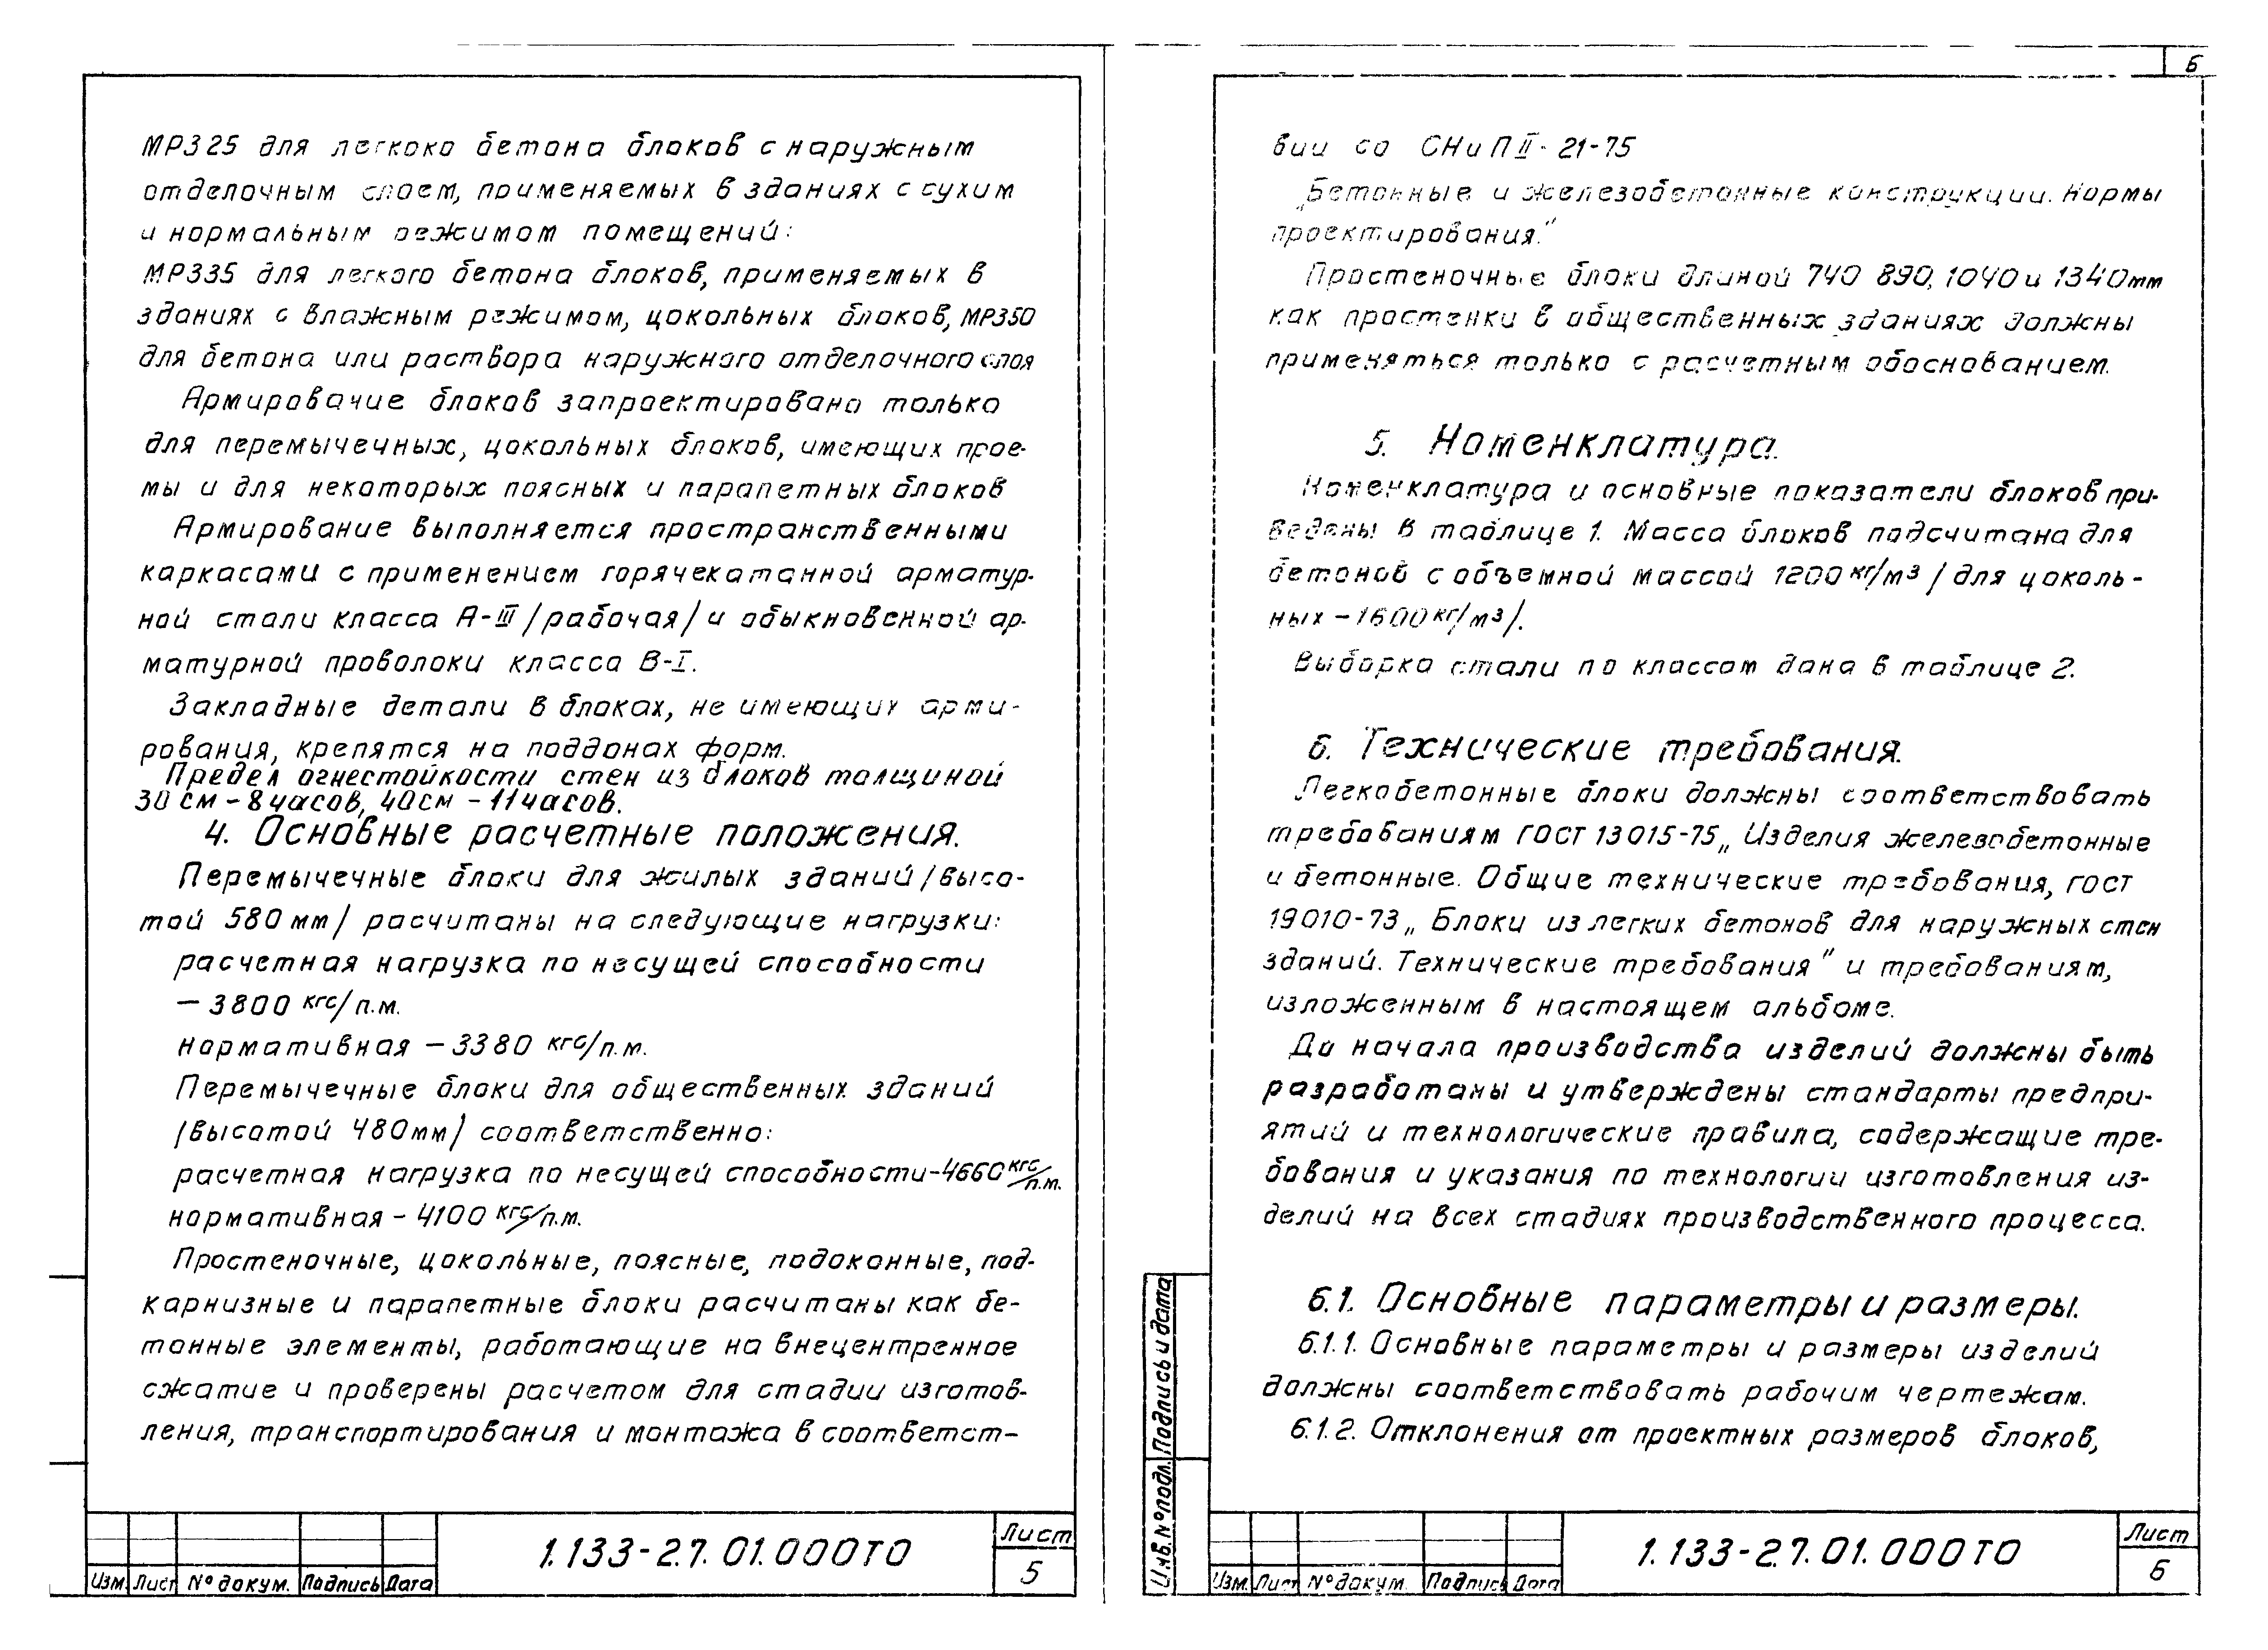 МРЗ 25 для легкоко бетона блоков с наружным
отделочным слоем, применяемых в зданиях с сухим
и нормальным режимом помещений:
МРЗ35 для легкого бетона блоков, применяемых в
зданиях с влажным режимом, цокольных блоков, МРЗ50
для бетона или раствора наружного отделочного слоя
Армирование блоков запроектировано только
для перемычечных, цокольных блоков, имеющих прое-
мы и для некоторых поясных и парапетных блоков
Армирование выполняется пространственными
каркасами с применением горячекатанной арматур-
ной стали класса А-III /рабочая/ и обыкновенной ар-
матурной проволоки класса В-I.
Закладные детали в блоках, не имеющих арми-
рования, крепятся на поддонах форм.
Предел огнестойкости стен из блоков толщиной
30 см - 8 часов, 40см - 11 часов.
4. Основные расчетные положения.
Перемычечные блоки для жилых зданий /высо-
той 580 мм/ расчитаны на следующие нагрузки:
расчетная нагрузка по несущей способности
— 3800 кгс/п.м.
нормативная — 3380 кгс/п.м.
Перемычечные блоки для общественных зданий
/высотой 480мм/ соответственно:
расчетная нагрузка по несущей способности-4660 кгс/п.м.
нормативная - 4100 кгс/п.м.
Простеночные, цокольные, поясные, подоконные, под-
карнизные и парапетные блоки расчитаны как бе-
тонные элементы, работающие на внецентренное
сжатие и проверены расчетом для стадии изготов-
ления, транспортирования и монтажа в соответст-
1.133-2.7.01.000ТО
Лист
5
Изм. Лист № докум. Подпись Дата
6
вии со СНиП II-21-75
„Бетонные и железобетонные конструкции. Нормы
проектирования."
Простеночные блоки длиной 740 890, 1040 и 1340мм
как простенки в общественных зданиях должны
применяться только с расчетным обоснованием.
5. Номенклатура.
Номенклатура и основные показатели блоков при-
ведены в таблице 1. Масса блоков подсчитана для
бетонов с объемной массой 1200 кг/м³ /для цоколь-
ных - 1600 кг/м³/.
Выборка стали по классам дана в таблице 2.
6. Технические требования.
Легкобетонные блоки должны соответствовать
требованиям ГОСТ 13015-75 „Изделия железобетонные
и бетонные. Общие технические требования, ГОСТ
19010-73 „Блоки из легких бетонов для наружных стен
зданий. Технические требования" и требованиям,
изложенным в настоящем альбоме.
До начала производства изделий должны быть
разработаны и утверждены стандарты предпри-
ятий и технологические правила, содержащие тре-
бования и указания по технологии изготовления из-
делий на всех стадиях производственного процесса.
6.1. Основные параметры и размеры.
6.1.1. Основные параметры и размеры изделий
должны соответствовать рабочим чертежам.
6.1.2. Отклонения от проектных размеров блоков,
Инв. № подл. Подпись и дата
1.133-2.7.01.000ТО
Лист
6
Изм. Лист № докум. Подпись Дата